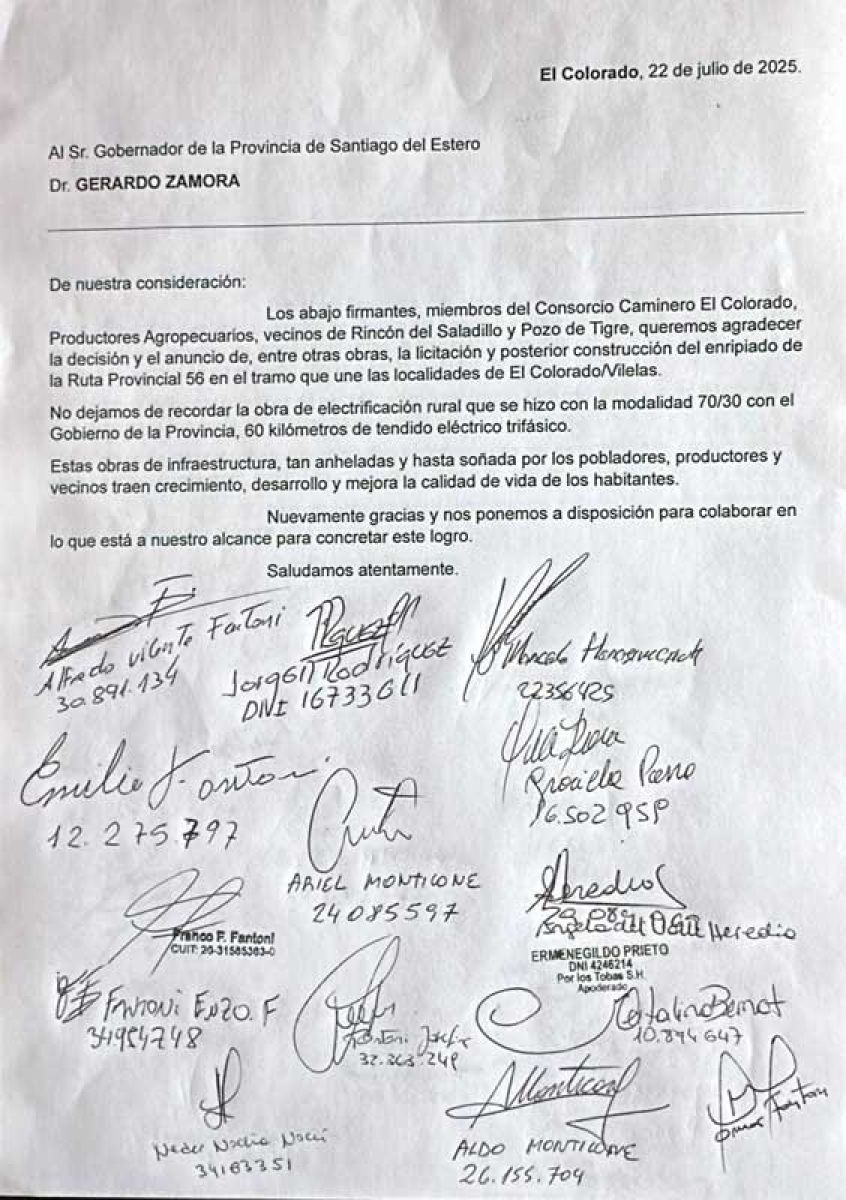 El Colorado, 22 de julio de 2025.
Al Sr. Gobernador de la Provincia de Santiago del Estero
Dr. GERARDO ZAMORA
De nuestra consideración:
Los abajo firmantes, miembros del Consorcio Caminero El Colorado,
Productores Agropecuarios, vecinos de Rincón del Saladillo y Pozo de Tigre, queremos agradecer
la decisión y el anuncio de, entre otras obras, la licitación y posterior construcción del enripiado de
la Ruta Provincial 56 en el tramo que une las localidades de El Colorado/Vilelas.
No dejamos de recordar la obra de electrificación rural que se hizo con la modalidad 70/30 con el
Gobierno de la Provincia, 60 kilómetros de tendido eléctrico trifásico.
Estas obras de infraestructura, tan anheladas y hasta soñada por los pobladores, productores y
vecinos traen crecimiento, desarrollo y mejora la calidad de vida de los habitantes.
Nuevamente gracias y nos ponemos a disposición para colaborar en
lo que está a nuestro alcance para concretar este logro.
Saludamos atentamente.
Alfredo Vicente Fantoni
30.891.134
Jorge Rodríguez
DNI 16733611
Marcelo
22356425
Emilio Fantoni
12.275.797
ARIEL MONTICONE
24085597
Heredio
Franco F. Fantoni
ERMENEGILDO PRIETO
DNI 4246214
Por los Tobas S.H.
Apoderado
FANTONI ENZO. F
34954748
Fantoni
Catalino Bernat
10.894647
Monticone
ALDO MONTICONE
26.155.704
Omar Fantoni
Neder Nadia Noemí
34183351